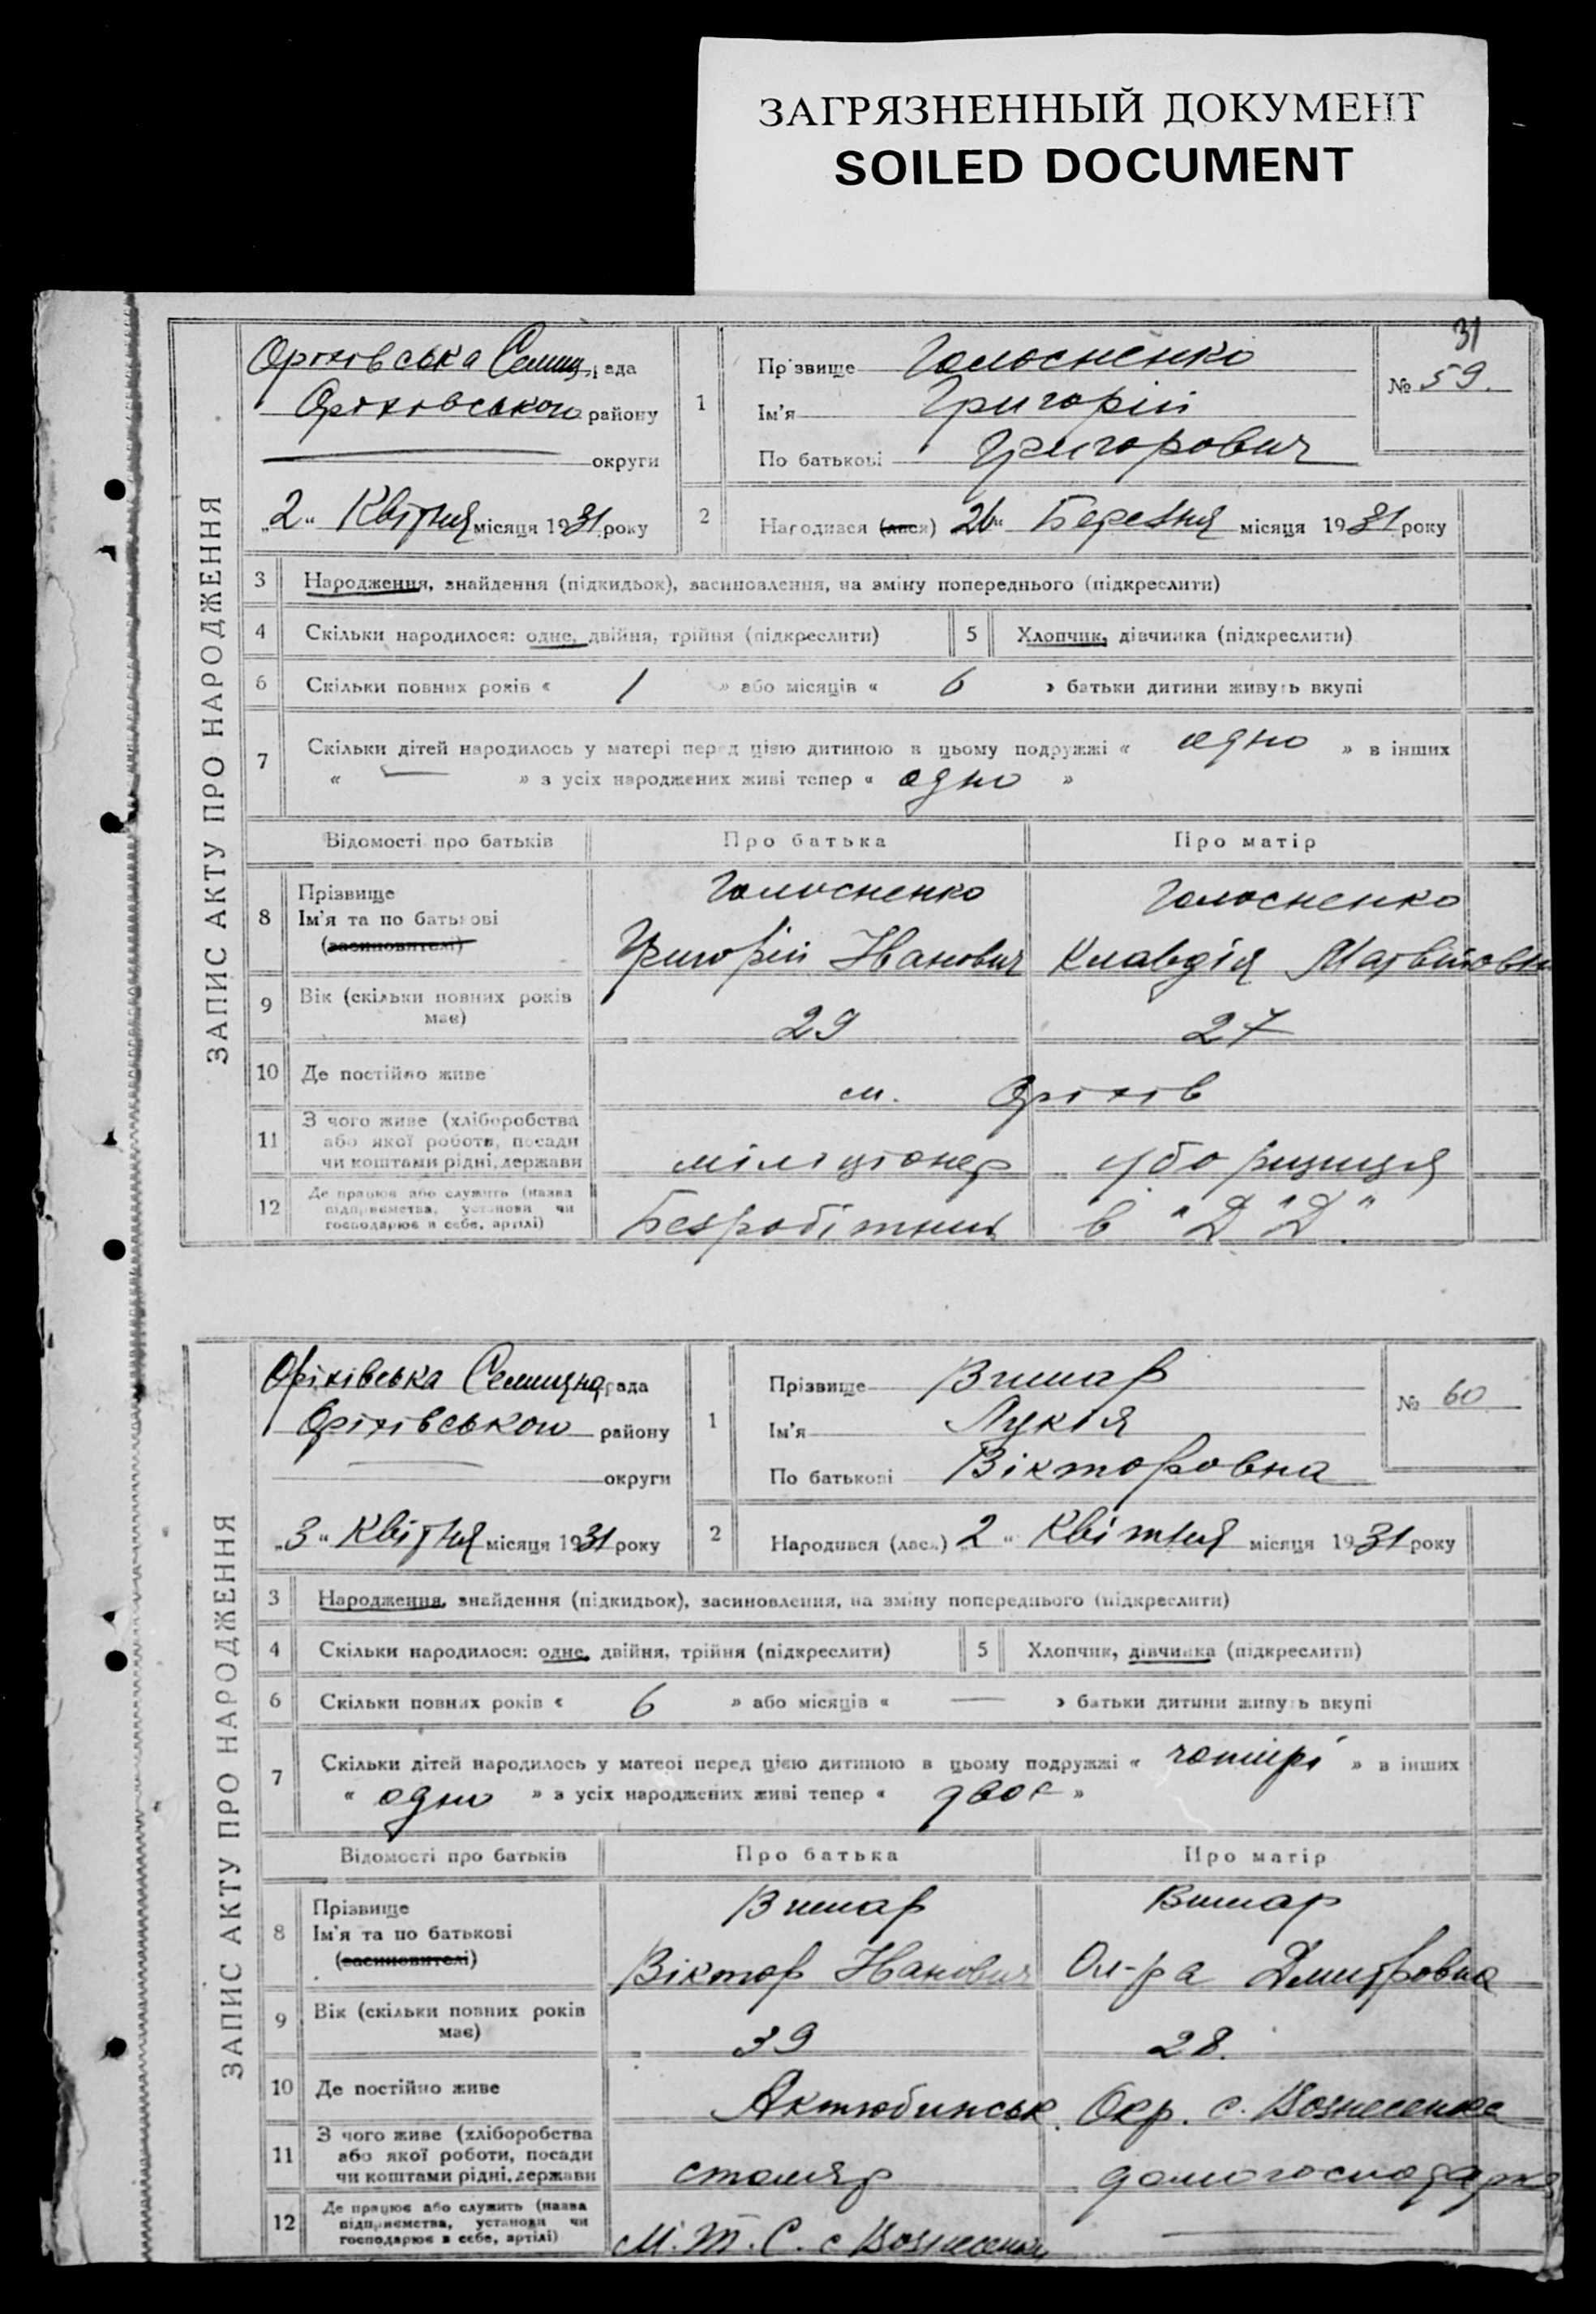 ЗАГРЯЗНЕННЫЙ ДОКУМЕНТ
SOILED DOCUMENT
31
ЗАПИС АКТУ ПРО НАРОДЖЕННЯ
Оріхівська Селищ. рада
Оріхівського району
округи
„2“ Квітня місяця 1931 року
1
Прізвище Голосненко
Ім'я Григорій
По батькові Григорович
№ 59.
2
Народився (лася) 26“ Березня місяця 1931 року
3 Народження, знайдення (підкидьок), засиновлення, на зміну попереднього (підкреслити)
4 Скільки народилося: одне, двійня, трійня (підкреслити) 5 Хлопчик, дівчинка (підкреслити)
6 Скільки повних років « 1 » або місяців « 6 » батьки дитини живуть вкупі
7 Скільки дітей народилось у матері перед цією дитиною в цьому подружжі « одно » в інших
« — » з усіх народжених живі тепер « одно »
Відомості про батьків Про батька Про матір
8 Прізвище Голосненко Голосненко
Ім'я та по батькові
(засиновителі) Григорій Иванович Клавдія Матвіївна
9 Вік (скільки повних років
має) 29 27
10 Де постійно живе м. Оріхів
11 З чого живе (хліборобства
або якої роботи, посади
чи коштами рідні, держави міліціонер уборщиця
12 Де працює або служить (назва
підприємства, установи чи
господарює в себе, артілі) Безробітний в "Д"Д"
ЗАПИС АКТУ ПРО НАРОДЖЕННЯ
Оріхівська Селищна рада
Оріхівського району
округи
„3“ Квітня місяця 1931 року
1
Прізвище
Ім'я Лукія
По батькові Вікторовна
№ 60
2
Народився (лася) „2“ Квітня місяця 1931 року
3 Народження, знайдення (підкидьок), засиновлення, на зміну попереднього (підкреслити)
4 Скільки народилося: одне, двійня, трійня (підкреслити) 5 Хлопчик, дівчинка (підкреслити)
6 Скільки повних років « 6 » або місяців « — » батьки дитини живуть вкупі
7 Скільки дітей народилось у матері перед цією дитиною в цьому подружжі « чотирі » в інших
« одно » з усіх народжених живі тепер « двоє »
Відомості про батьків Про батька Про матір
8 Прізвище
Ім'я та по батькові
(засиновителі) Віктор Иванович Ол-ра Дмитровна
9 Вік (скільки повних років
має) 39 28.
10 Де постійно живе Актюбинськ. Окр. с. Вознесенка
11 З чого живе (хліборобства
або якої роботи, посади
чи коштами рідні, держави столяр домогосподарка
12 Де працює або служить (назва
підприємства, установи чи
господарює в себе, артілі) М.Т.С. с Вознесенки